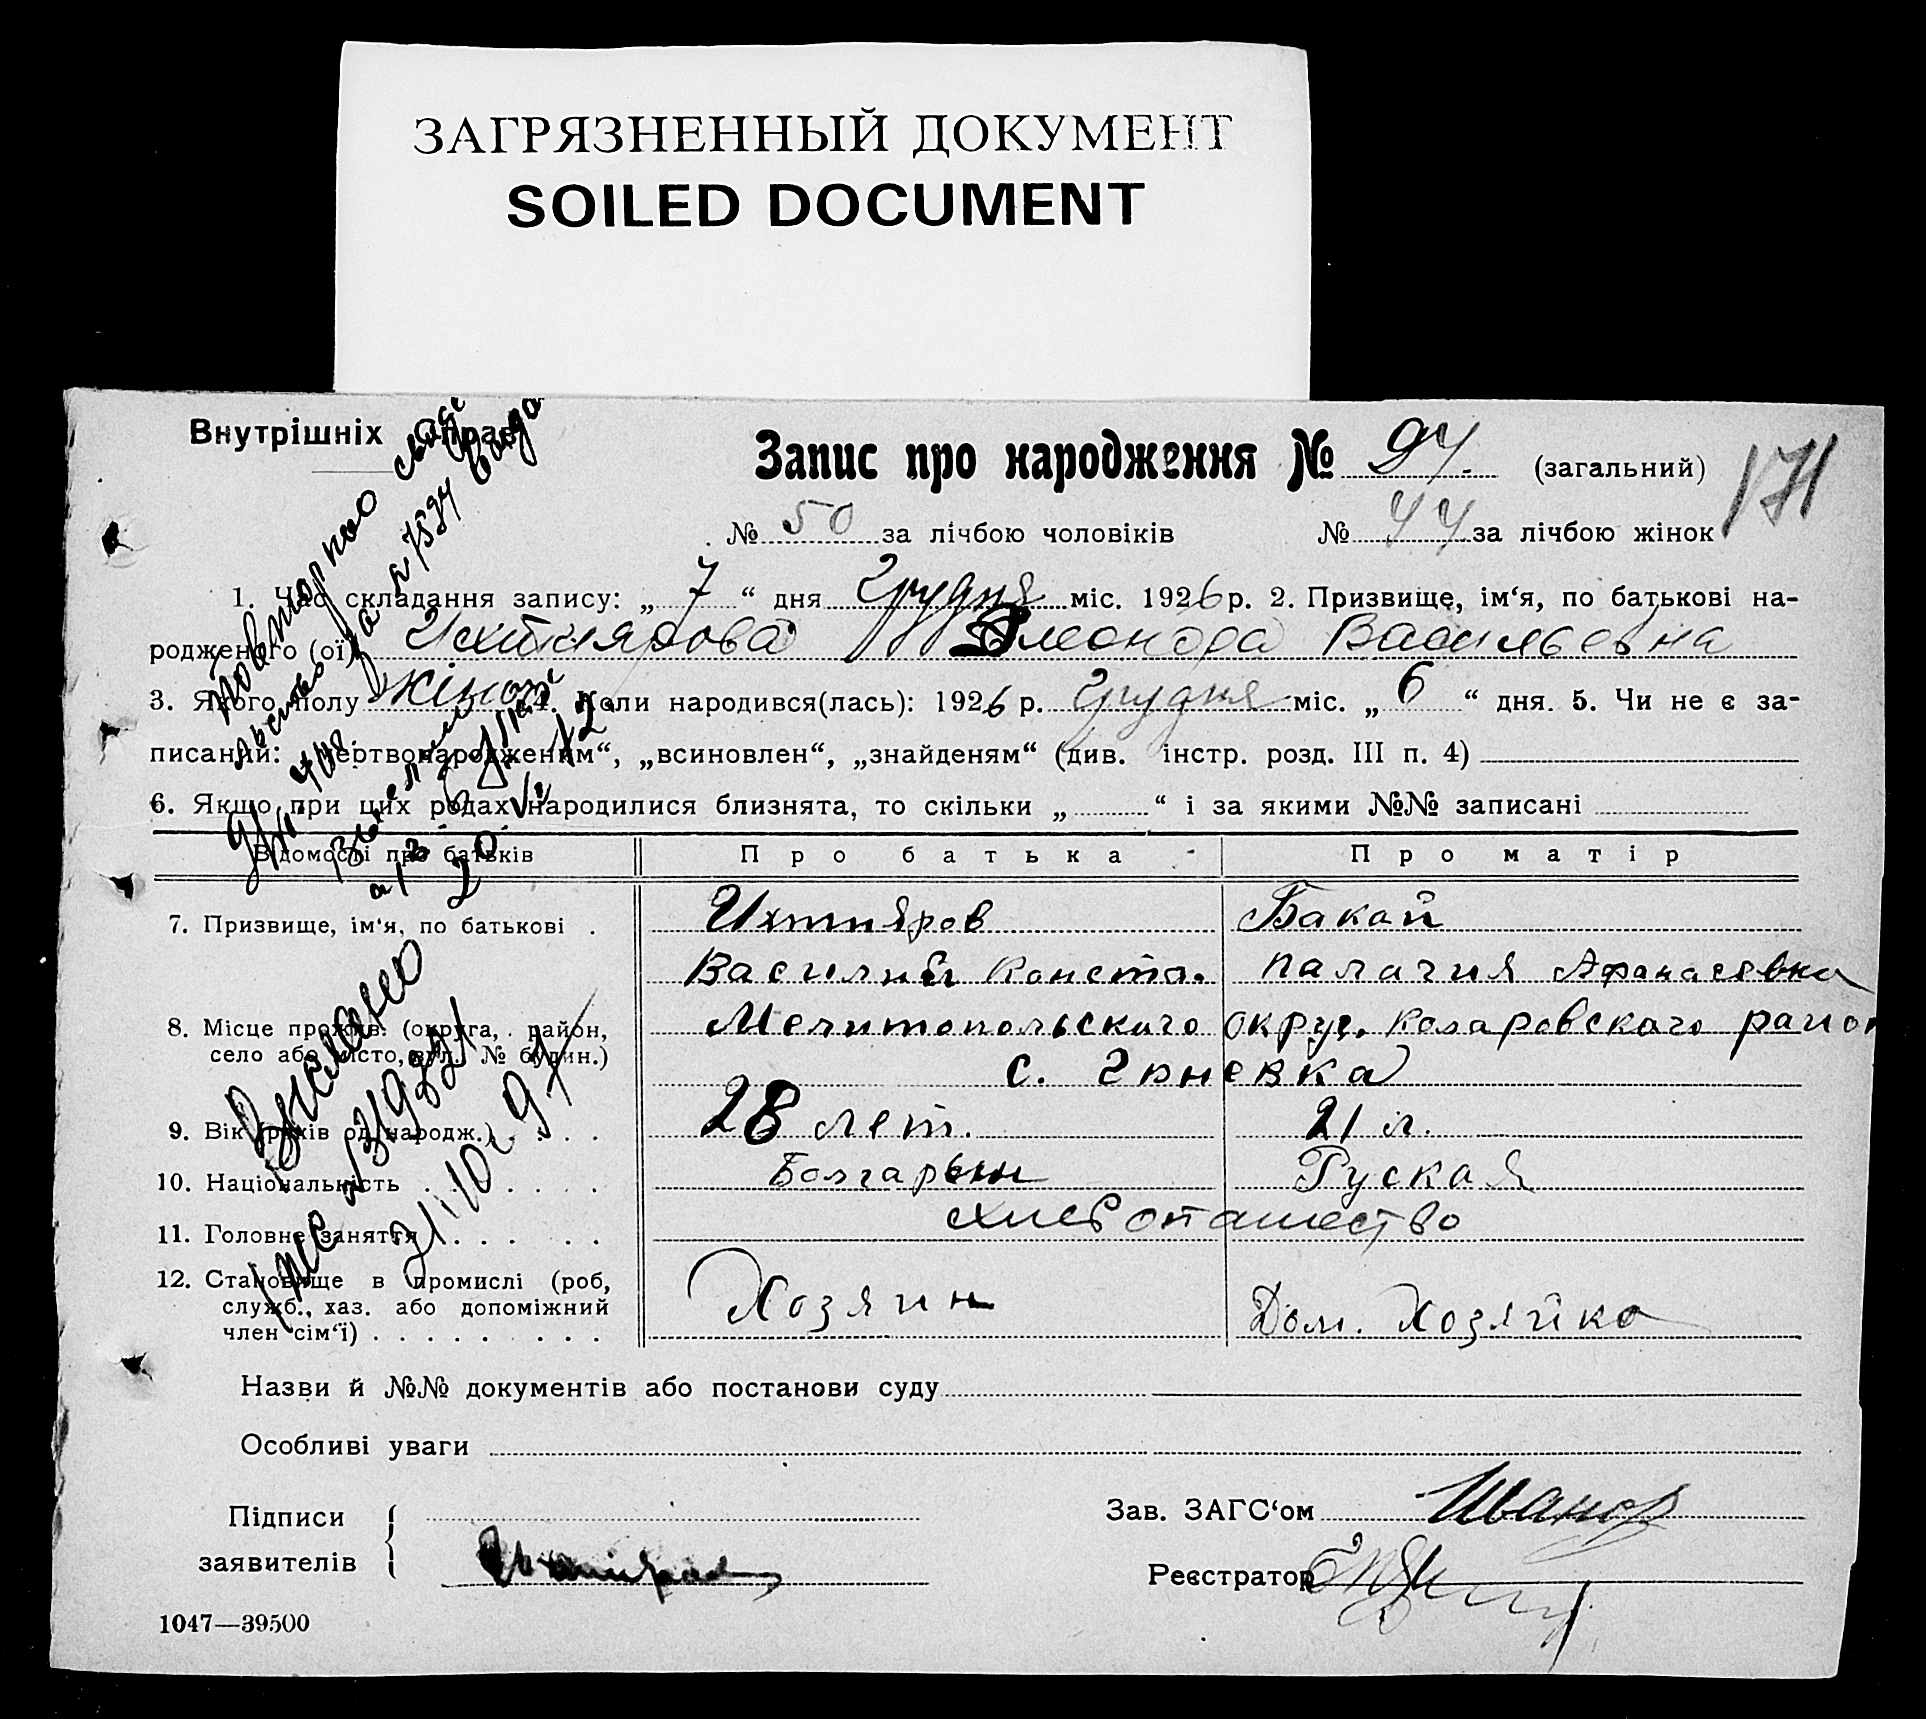 ЗАГРЯЗНЕННЫЙ ДОКУМЕНТ
SOILED DOCUMENT
Внутрішніх Справ
Запис про народження № 94. (загальний)
171
№ 50 за лічбою чоловіків № 44 за лічбою жінок
1. Час складання запису: „ 7 “ дня Грудня міс. 1926 р. 2. Призвище, ім‘я, по батькові на-
родженого (ої) Ихтиярова Васильевна
3. Якого полу жіноч. 4. Коли народився(лась): 1926 р. Грудня міс. „ 6 “ дня. 5. Чи не є за-
писаний: „мертвонародженим“, „всиновлен“, „знайденям“ (див. інстр. розд. III п. 4)
6. Якщо при цих родах народилися близнята, то скільки „ “ і за якими №№ записані
Відомості про батьків Про батька Про матір
7. Призвище, ім‘я, по батькові . Ихтияров Бакай
Василий Конста. Палагия Афанасевна
8. Місце прожив. (округа, район, Мелитопольскаго округ. Коларовскаго район
село або місто, вул. № будин.) с. Гюневка
9. Вік (років од народж.) . . . . 28 лет. 21 л.
10. Національність . . . . . . . Болгарын Руская
11. Головне заняття . . . . . . хлебопашество
12. Становище в промислі (роб,
служб., хаз. або допоміжний Хозяин Дом. Хозяйка
член сім‘ї) . . . . . . . . .
Назви й №№ документів або постанови суду
Особливі уваги
Підписи
заявителів Ихтияров
Зав. ЗАГС‘ом Иванов
Реєстратор
1047—39500
Повторно